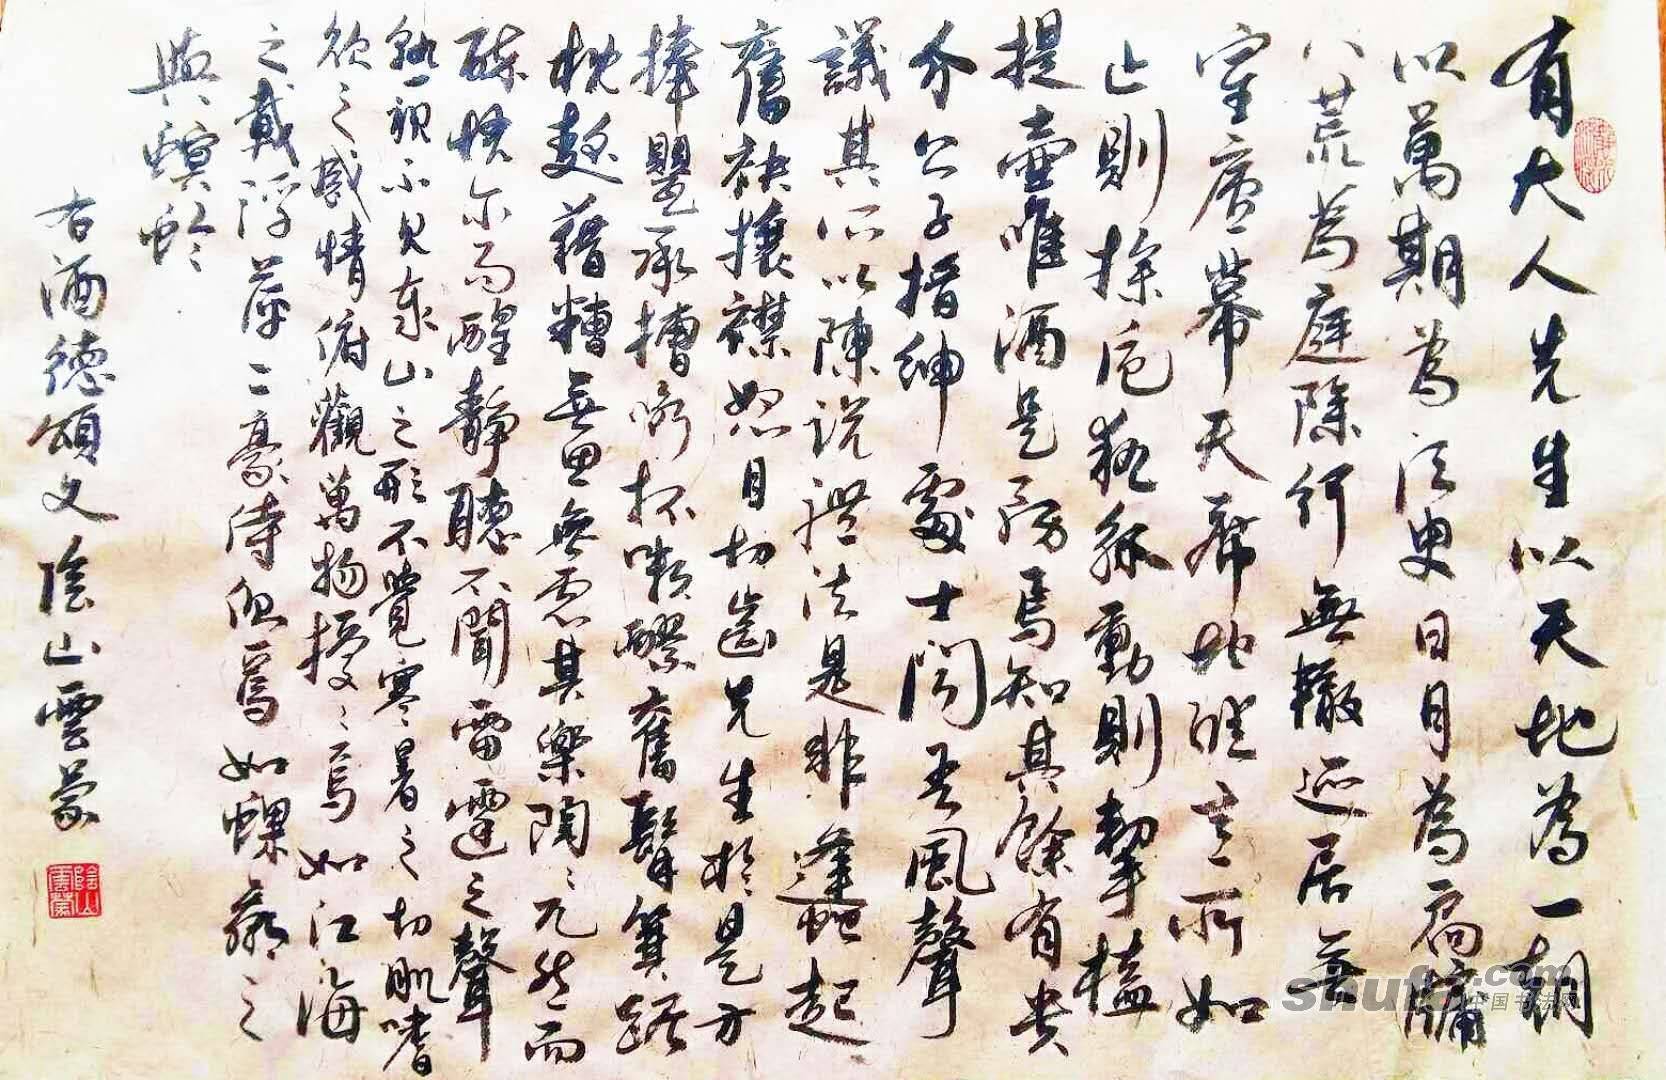 有大人先生以天地為一朝
以萬期為須臾日月為扃牖
八荒為庭除行無轍迹居無
室廬幕天席地縱意所如
止則操卮執觚動則挈榼
提壺唯酒是務焉知其餘有貴
介公子搢紳處士聞吾風聲
議其所以陳說禮法是非蜂起
奮袂攘襟怒目切齒先生於是方
捧甖承槽銜杯漱醪奮髯箕踞
枕麴藉糟無思無慮其樂陶〻兀然而
醉恍尔而醒靜聽不聞雷霆之聲
熟視不見泰山之形不覺寒暑之切肌嗜
欲之感情俯觀萬物擾〻焉如江海
之載浮萍二豪侍側焉如蜾蠃之
與螟蛉
右酒德頌文陰山雲蒙
陰山雲蒙
shufa.com
中国书法网